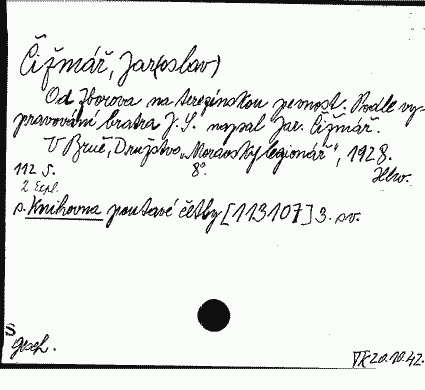 Čižmář, Jar(oslav)
Od Zborova na terezínskou pevnost. Podle vy-
pravování bratra J. S. napsal Jar. Čižmář.
V Brně, Družstvo „Moravský legionář", 1928.
112 s. 8°.
2 Expl.
s. Knihovna poutavé četby [113107] 3. sv.
S
gesch.
20.10.42.